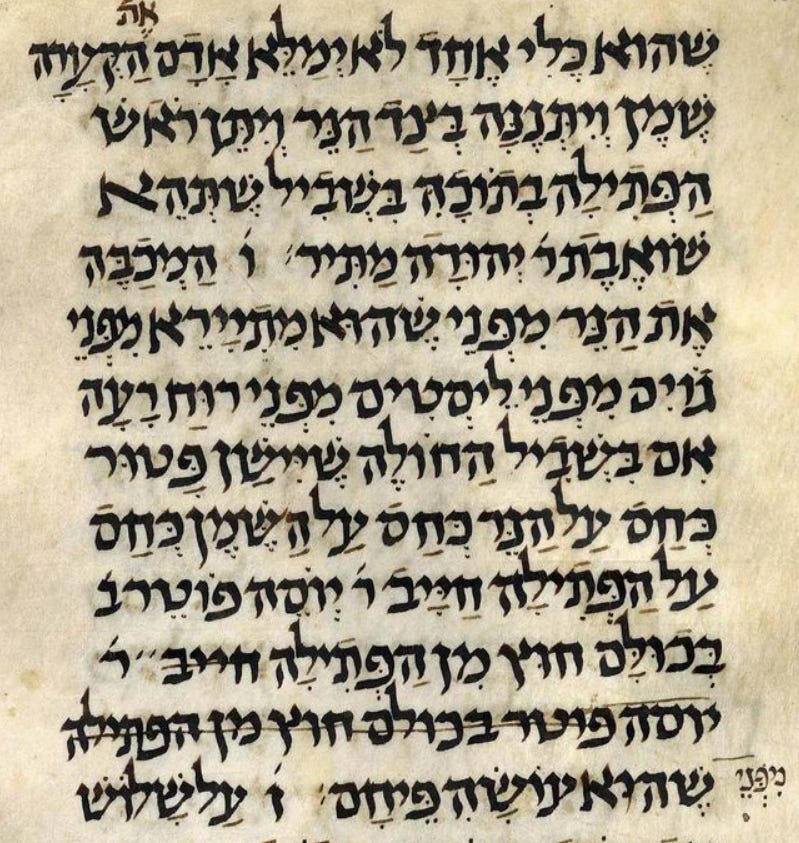 אֶת
שֶׁהוּא כֶּלִי אֶחָד לֹא יְמַלֵּא אָדָם הַקְּעָרָה
שֶׁמֶן וְיִתְּנֶנָּה בְּצַד הַנֵּר וְיִתֵּן רֹאשׁ
הַפְּתִילָה בְתוֹכָהּ בִּשְׁבִיל שֶׁתְּהֵא
שׁוֹאֶבֶת ר׳ יְהוּדָה מַתִּיר׳ ו׳ הַמְכַבֶּה
אֶת הַנֵּר מִפְּנֵי שֶׁהוּא מִתְיָירֵא מִפְּנֵי
גוֹיִם מִפְּנֵי לִיסְטִיס מִפְּנֵי רוּחַ רָעָה
אִם בִּשְׁבִיל הַחוֹלֶה שֶׁיִּישַׁן פָּטוּר
כְּחַס עַל הַנֵּר כְּחַס עַל הַשֶּׁמֶן כְּחַס
עַל הַפְּתִילָה חַיָּיב ר׳ יוֹסֵה פוֹטֵר ב
בְּכוּלָּם חוּץ מִן הַפְּתִילָה חייב׳׳ ר׳
יוסה פוטר בכולם חוץ מן הפתילה
מִפְּנֵי שֶׁהוּא עוֹשֶׂהָ פֵּיחָם׳ ו׳ עַל שָׁלוֹשׁ